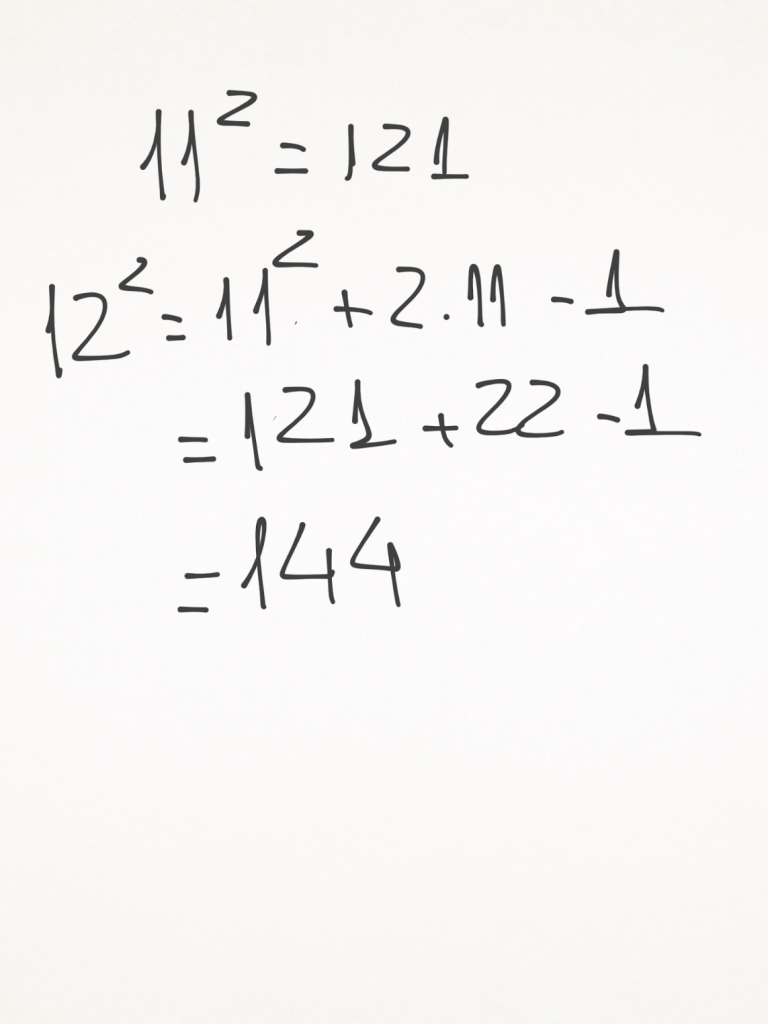 11² = 121
12² = 11² + 2.11 - 1
= 121 + 22 - 1
= 144